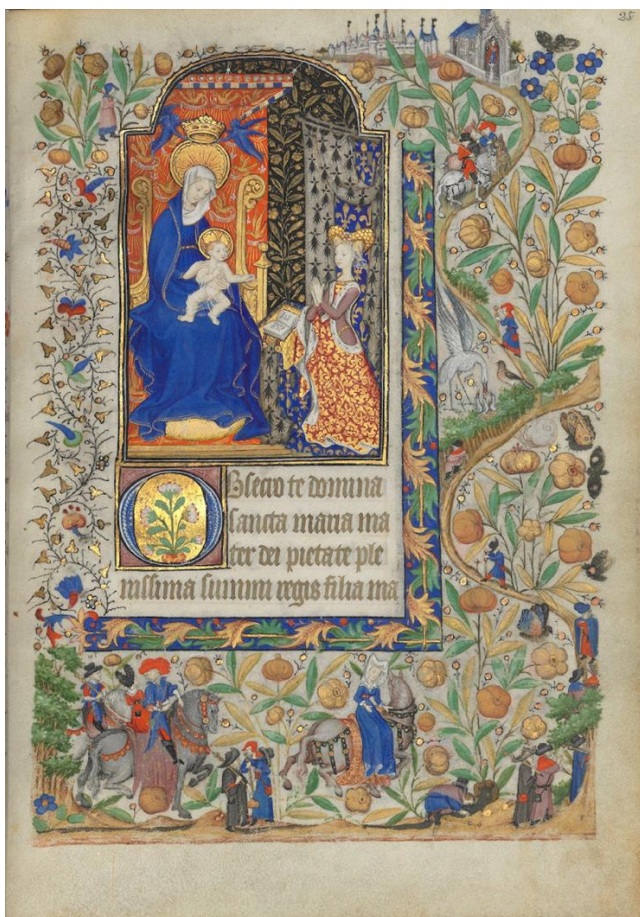 25
OBsecro te domina
sancta maria ma
ter dei pietate ple
nissima summi regis filia ma